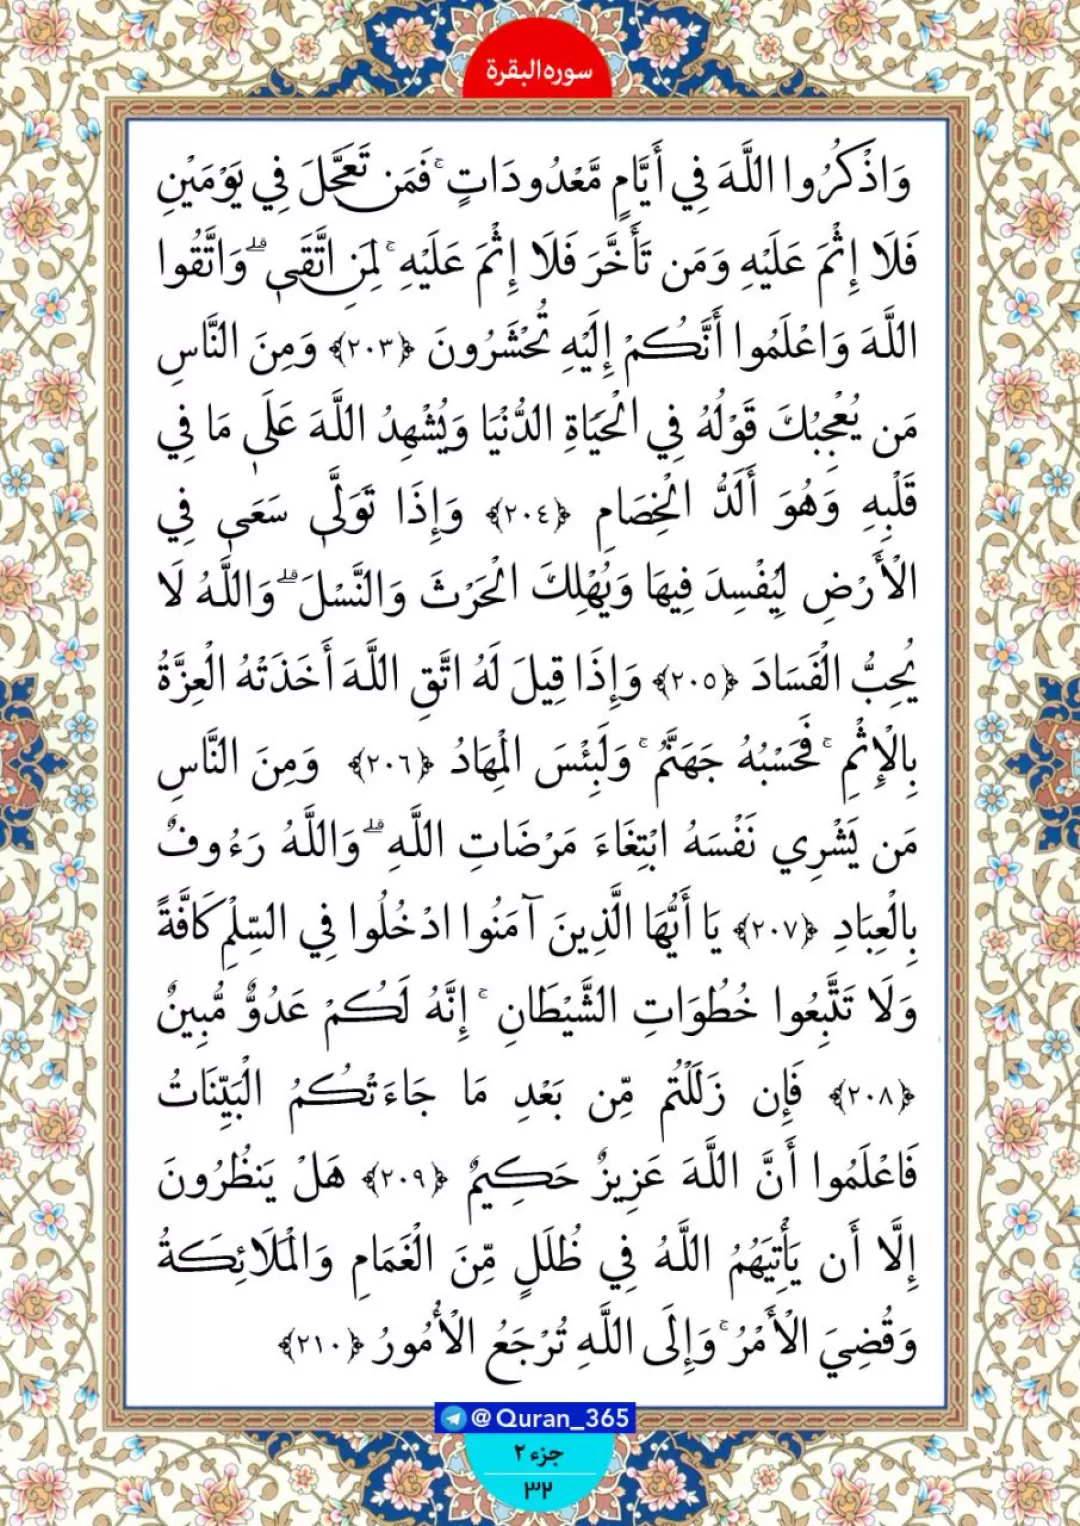 سوره البقرة
وَاذْكُرُوا اللَّهَ فِي أَيَّامٍ مَّعْدُودَاتٍ ۚ فَمَن تَعَجَّلَ فِي يَوْمَيْنِ
فَلَا إِثْمَ عَلَيْهِ وَمَن تَأَخَّرَ فَلَا إِثْمَ عَلَيْهِ ۚ لِمَنِ اتَّقَىٰ ۗ وَاتَّقُوا
اللَّهَ وَاعْلَمُوا أَنَّكُمْ إِلَيْهِ تُحْشَرُونَ ﴿٢٠٣﴾ وَمِنَ النَّاسِ
مَن يُعْجِبُكَ قَوْلُهُ فِي الْحَيَاةِ الدُّنْيَا وَيُشْهِدُ اللَّهَ عَلَىٰ مَا فِي
قَلْبِهِ وَهُوَ أَلَدُّ الْخِصَامِ ﴿٢٠٤﴾ وَإِذَا تَوَلَّىٰ سَعَىٰ فِي
الْأَرْضِ لِيُفْسِدَ فِيهَا وَيُهْلِكَ الْحَرْثَ وَالنَّسْلَ ۗ وَاللَّهُ لَا
يُحِبُّ الْفَسَادَ ﴿٢٠٥﴾ وَإِذَا قِيلَ لَهُ اتَّقِ اللَّهَ أَخَذَتْهُ الْعِزَّةُ
بِالْإِثْمِ ۚ فَحَسْبُهُ جَهَنَّمُ ۚ وَلَبِئْسَ الْمِهَادُ ﴿٢٠٦﴾ وَمِنَ النَّاسِ
مَن يَشْرِي نَفْسَهُ ابْتِغَاءَ مَرْضَاتِ اللَّهِ ۗ وَاللَّهُ رَءُوفٌ
بِالْعِبَادِ ﴿٢٠٧﴾ يَا أَيُّهَا الَّذِينَ آمَنُوا ادْخُلُوا فِي السِّلْمِ كَافَّةً
وَلَا تَتَّبِعُوا خُطُوَاتِ الشَّيْطَانِ ۚ إِنَّهُ لَكُمْ عَدُوٌّ مُّبِينٌ
﴿٢٠٨﴾ فَإِن زَلَلْتُم مِّن بَعْدِ مَا جَاءَتْكُمُ الْبَيِّنَاتُ
فَاعْلَمُوا أَنَّ اللَّهَ عَزِيزٌ حَكِيمٌ ﴿٢٠٩﴾ هَلْ يَنظُرُونَ
إِلَّا أَن يَأْتِيَهُمُ اللَّهُ فِي ظُلَلٍ مِّنَ الْغَمَامِ وَالْمَلَائِكَةُ
وَقُضِيَ الْأَمْرُ ۚ وَإِلَى اللَّهِ تُرْجَعُ الْأُمُورُ ﴿٢١٠﴾
@Quran_365
جزء ٢
٣٢